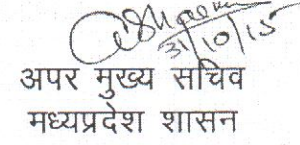 31/10/15
अपर मुख्य सचिव
मध्यप्रदेश शासन